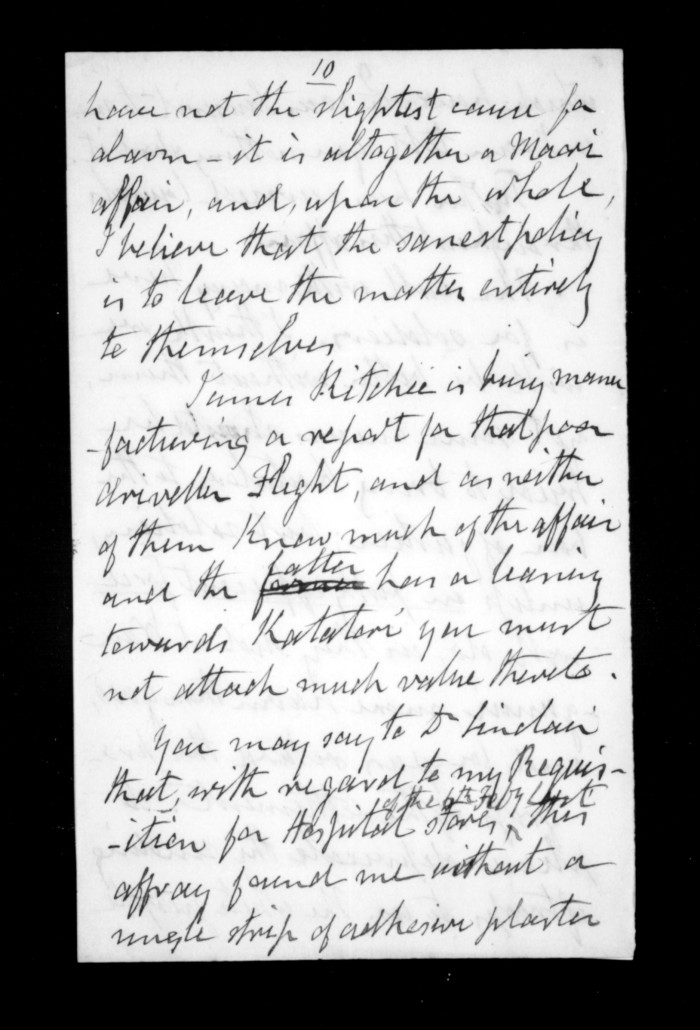 10
have not the slightest cause for
alarm - it is altogether a Maori
affair, and, upon the whole,
I believe that the sanest policy
is to leave the matter entirely
to themselves
James Ritchie is busy manu
-facturing a report for that poor
driveller Flight, and as neither
of them know much of the affair
and the latter former has a leaning
towards Katatori you must
not attach much value thereto.
You may say to Dr Sinclair
that, with regard to my Requis-
of the 6th Feby last
-ition for Hospital stores, ^ this
affray found me without a
single strip of adhesive plaster